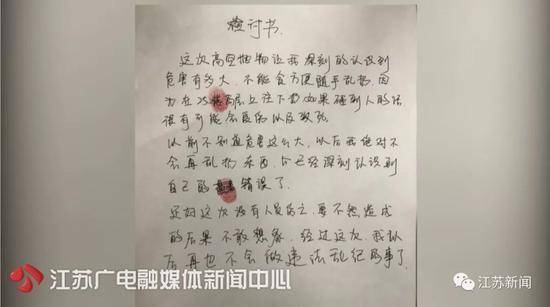 检讨书
这次高空抛物让我深刻的认识到
危害有多大，不能贪方便随手乱扔，因
为在25楼高层上往下扔如果碰到人的话
很有可能会医伤以及致死。
以前不知道危害这么大，以后我绝对不
会再乱扔东西，已经深刻认识到
自己的错误了。
还好这次没有人员伤亡，要不然造成
的后果不敢想象，经过这次，我以
后再也不会做违法乱纪的事了
江苏广电融媒体新闻中心
江苏新闻